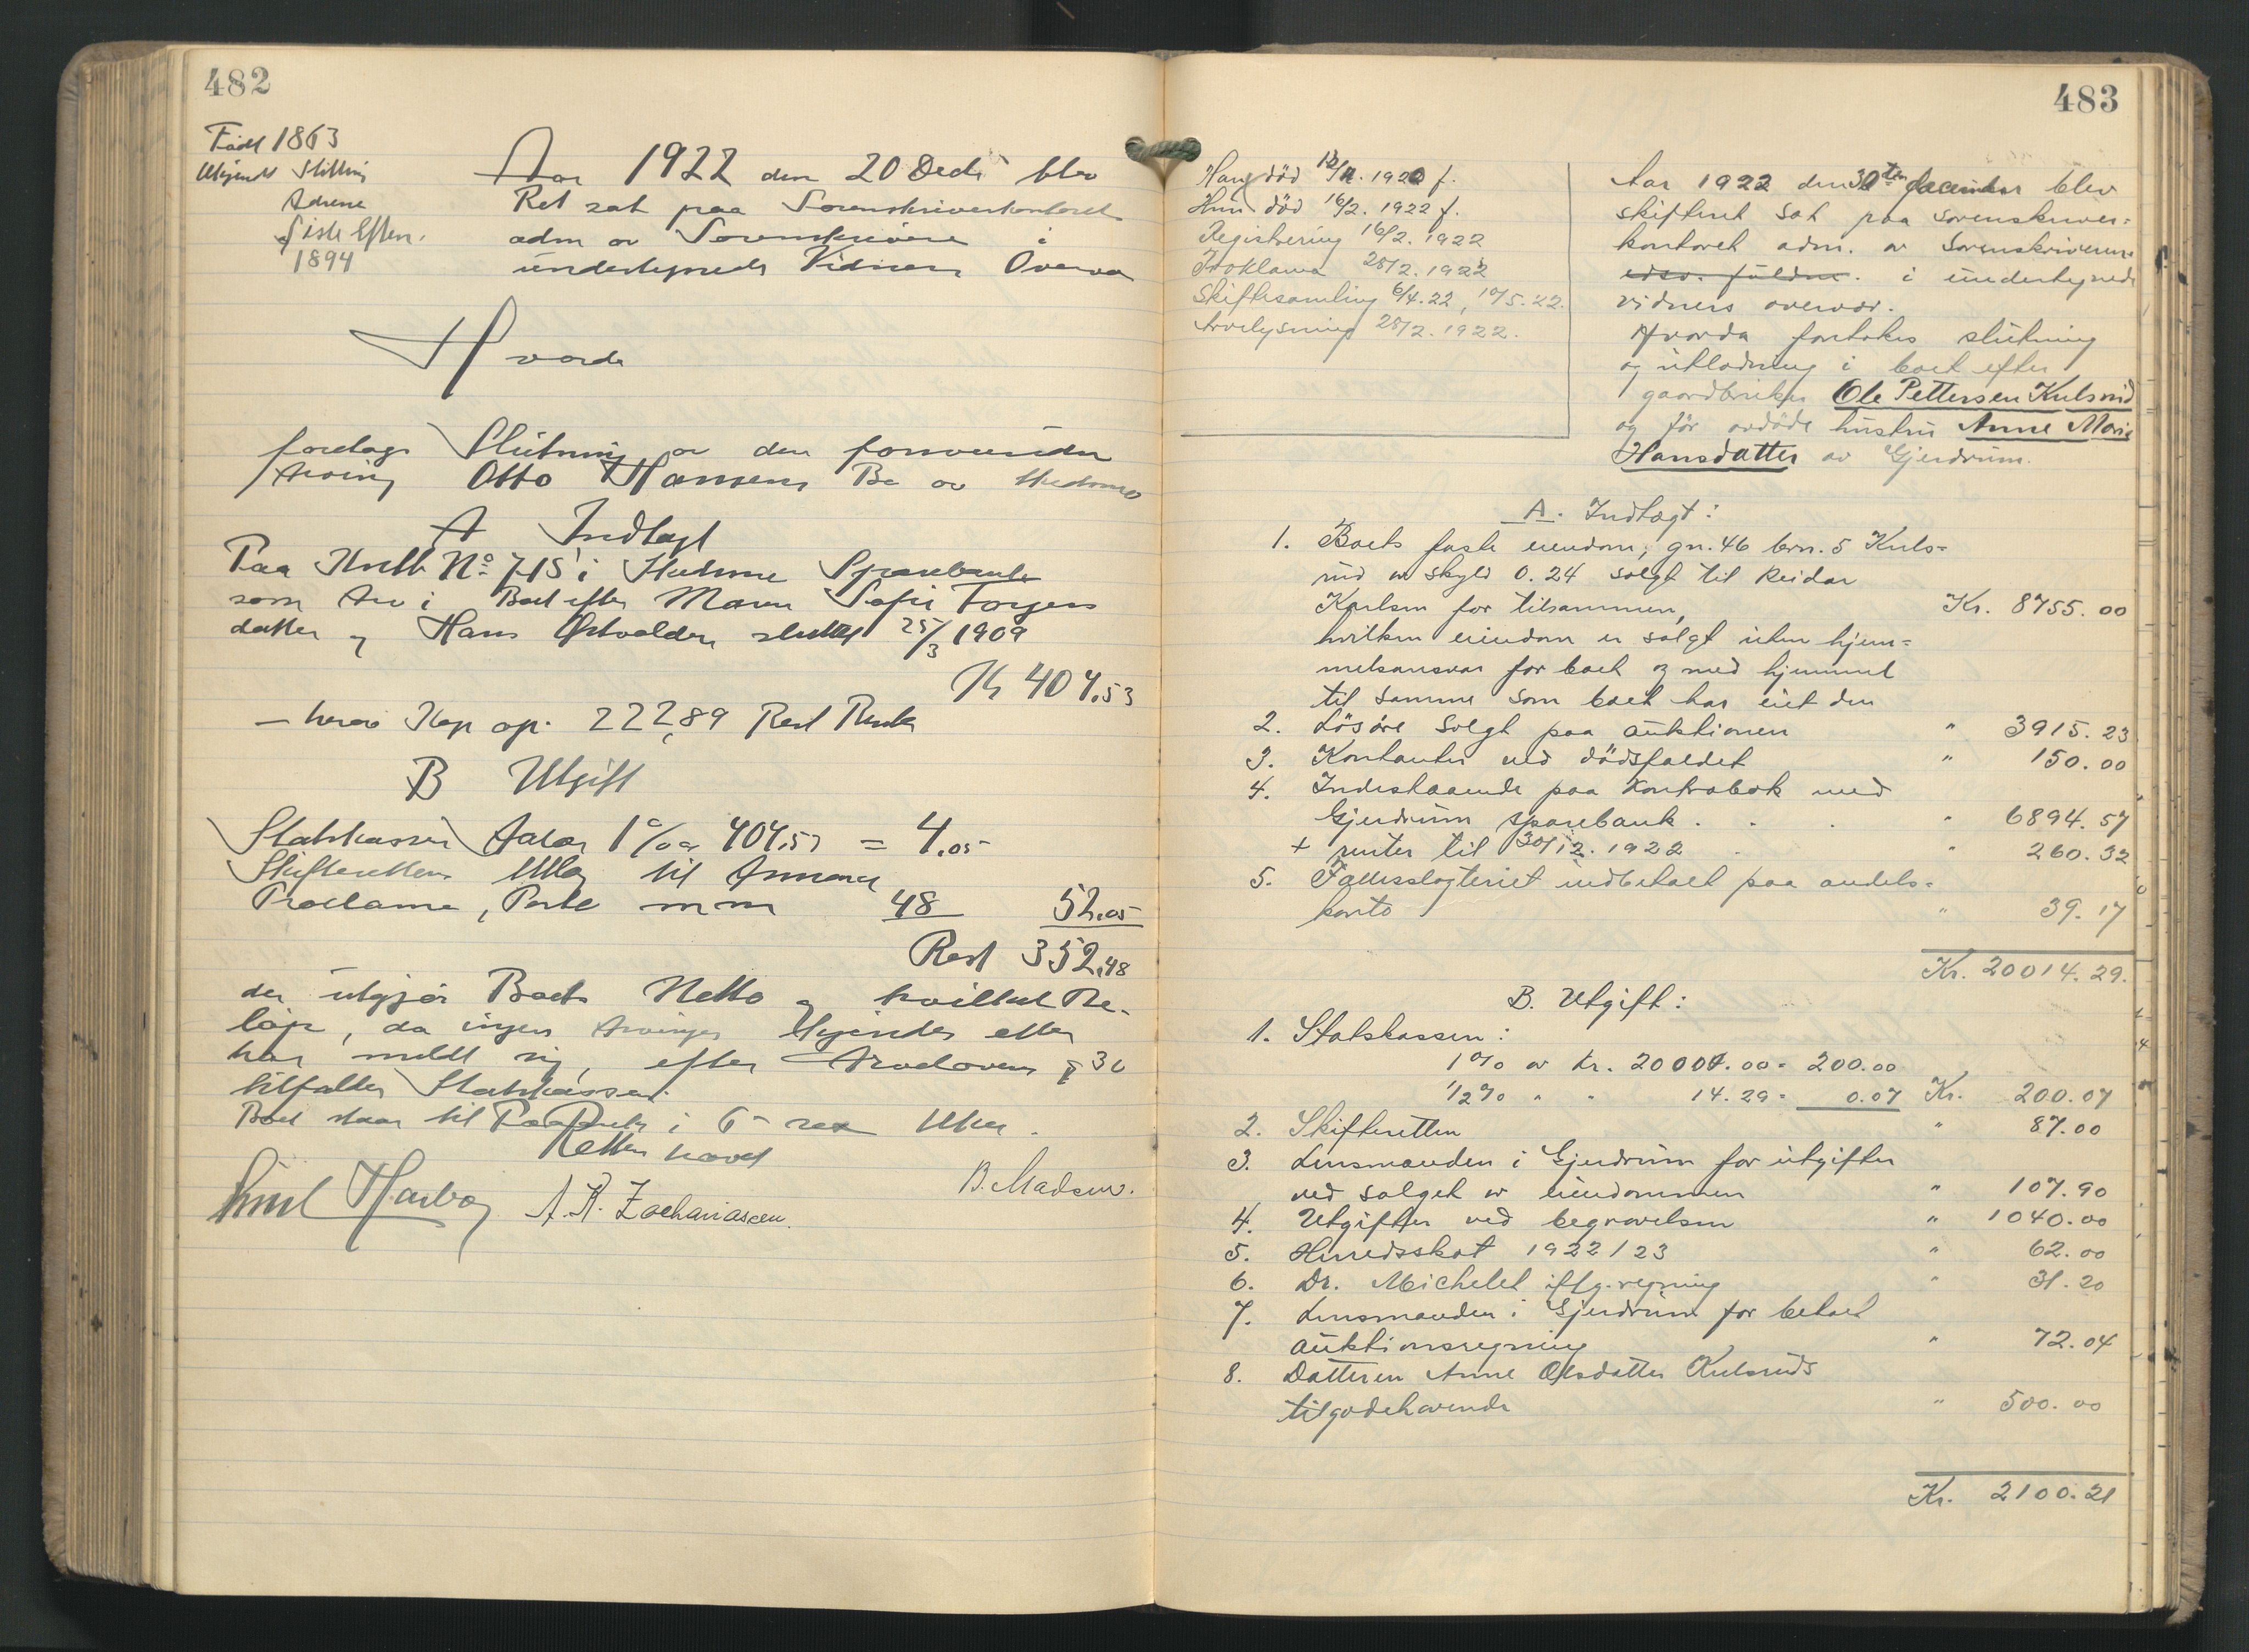 482
Født 1863
Ukjendt Stilling
Adresse
Siste Efterr.
1894
Aar 1922 den 20 Decbr blev
Ret sat paa Sorenskriverkontoret
adm av Sorenskriveren i
undertegnede Vidners Overvær
Hvorda
foretages Slutning av den forsvundne
Arving Otto Hansens Bo av
A Indtægt
Paa Kontb. No 715 i Sparebank
som Arv i Boet efter Maren Sofie Torgers
datter og Hans Østvolden sluttet 25/3 1909
Kr 404,53
— herav Kap. op. 222,89 Rest Renter
B Utgift
Statskassen Avgift 1% av 404,53 = 4.05
Skifterettens Utlæg til Annonce
Proclama, Porto m m 48 52.05
Rest 352,48
der utgjør Boets Netto og hvilket Be-
løp, da ingen Arvinger kjendes eller
har meldt sig, efter Arveloven § 36
tilfalder Statskassen.
Boet staar til Paaanke i 6 - sex Uker.
Retten hævet
Emil Harboe A. K. Zachariassen. B. Madsen.
483
Han død 12/11. 1920 f.
Hun død 16/2. 1922 f.
Registrering 16/2. 1922
Proklama 28/2. 1922
Skiftesamling 6/4. 22, 10/5. 22.
Arvelysning 28/2. 1922.
Aar 1922 den 30ten december blev
skifteret sat paa sorenskriver=
kontoret adm. av sorenskriveren
edsv. fuldm. i undertegnede
vidners overvær.
Hvorda foretokes slutning
og utlodning i boet efter
gaardbruker Ole Pettersen Kulsrud
og før avdøde hustru Anne Marie
Hansdatter av Gjerdrum.
A. Indtægt:
1. Boets faste eiendom, gn. 46 brn. 5 Kuls=
rud av skyld 0.24 solgt til Reidar
Karlsen for tilsammen, Kr. 8755.00
hvilken eiendom er solgt uten hjem=
melsansvar for boet og med hjemmel
til samme som boet har eiet den
2. Løsøre solgt paa auktionen " 3915.23
3. Kontanter ved dødsfaldet " 150.00
4. Indestaaende paa kontrabok med
Gjerdrum sparebank . . . " 6894.57
+ renter til 30/12. 1922 . " 260.32
5. Fællesslagteriet indbetalt paa andels=
konto " 39.17
Kr. 20014.29.
B. Utgift:
1. Statskassen:
1% av kr. 20000.00 = 200.00
1/2% " " 14.29 = 0.07 Kr. 200.07
2. Skifteretten " 87.00
3. Lensmanden i Gjerdrum for utgifter
ved salget av eiendommen " 107.90
4. Utgifter ved begravelsen " 1040.00
5. Herredsskat 1922/23 " 62.00
6. Dr. Michelet iflg. regning " 31.20
7. Lensmanden i Gjerdrum for betalt
auktionsregning " 72.04
8. Datteren Anne Olsdatter Kulsruds
tilgodehavende " 500.00
Kr. 2100.21